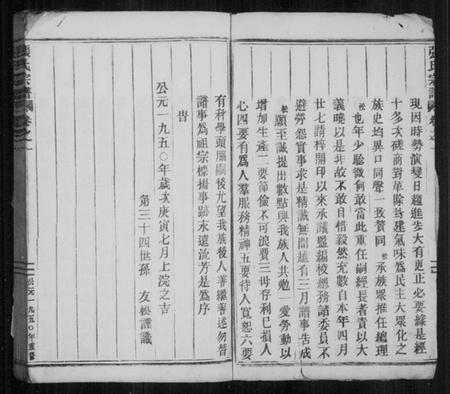 張氏宗譜 卷之一
現因時勢演變日趨進步大有更正必要緣是經
十多次磋商對革除封建氣味爲民主大眾化之
族史均異口同聲一致贊同 松承族眾推任總理
松也年少驗微何敢當此重任嗣經長者責以大
義曉以是非故不敢自惜毅然充數自本年四月
廿七請梓開印以來承議監編校經務諸委員不
避勞怨實事求是精誠無間越有三月譜事告成
松願至誠提出數點與我族人共勉一愛勞動以
增加生產二要節儉不可浪費三毋存利己損人
心四要有爲人羣服務精神五要待人寬恕六要
有科學頭腦嗣後尤望我族後人善繼善述勿替
譜事爲祖宗標揚事跡永遠流芳是爲序
旹
公元一九五〇年歲次庚寅七月上浣之吉
第三十四世孫 友松謹識
張氏宗譜 卷之一
公元一九五〇年重修